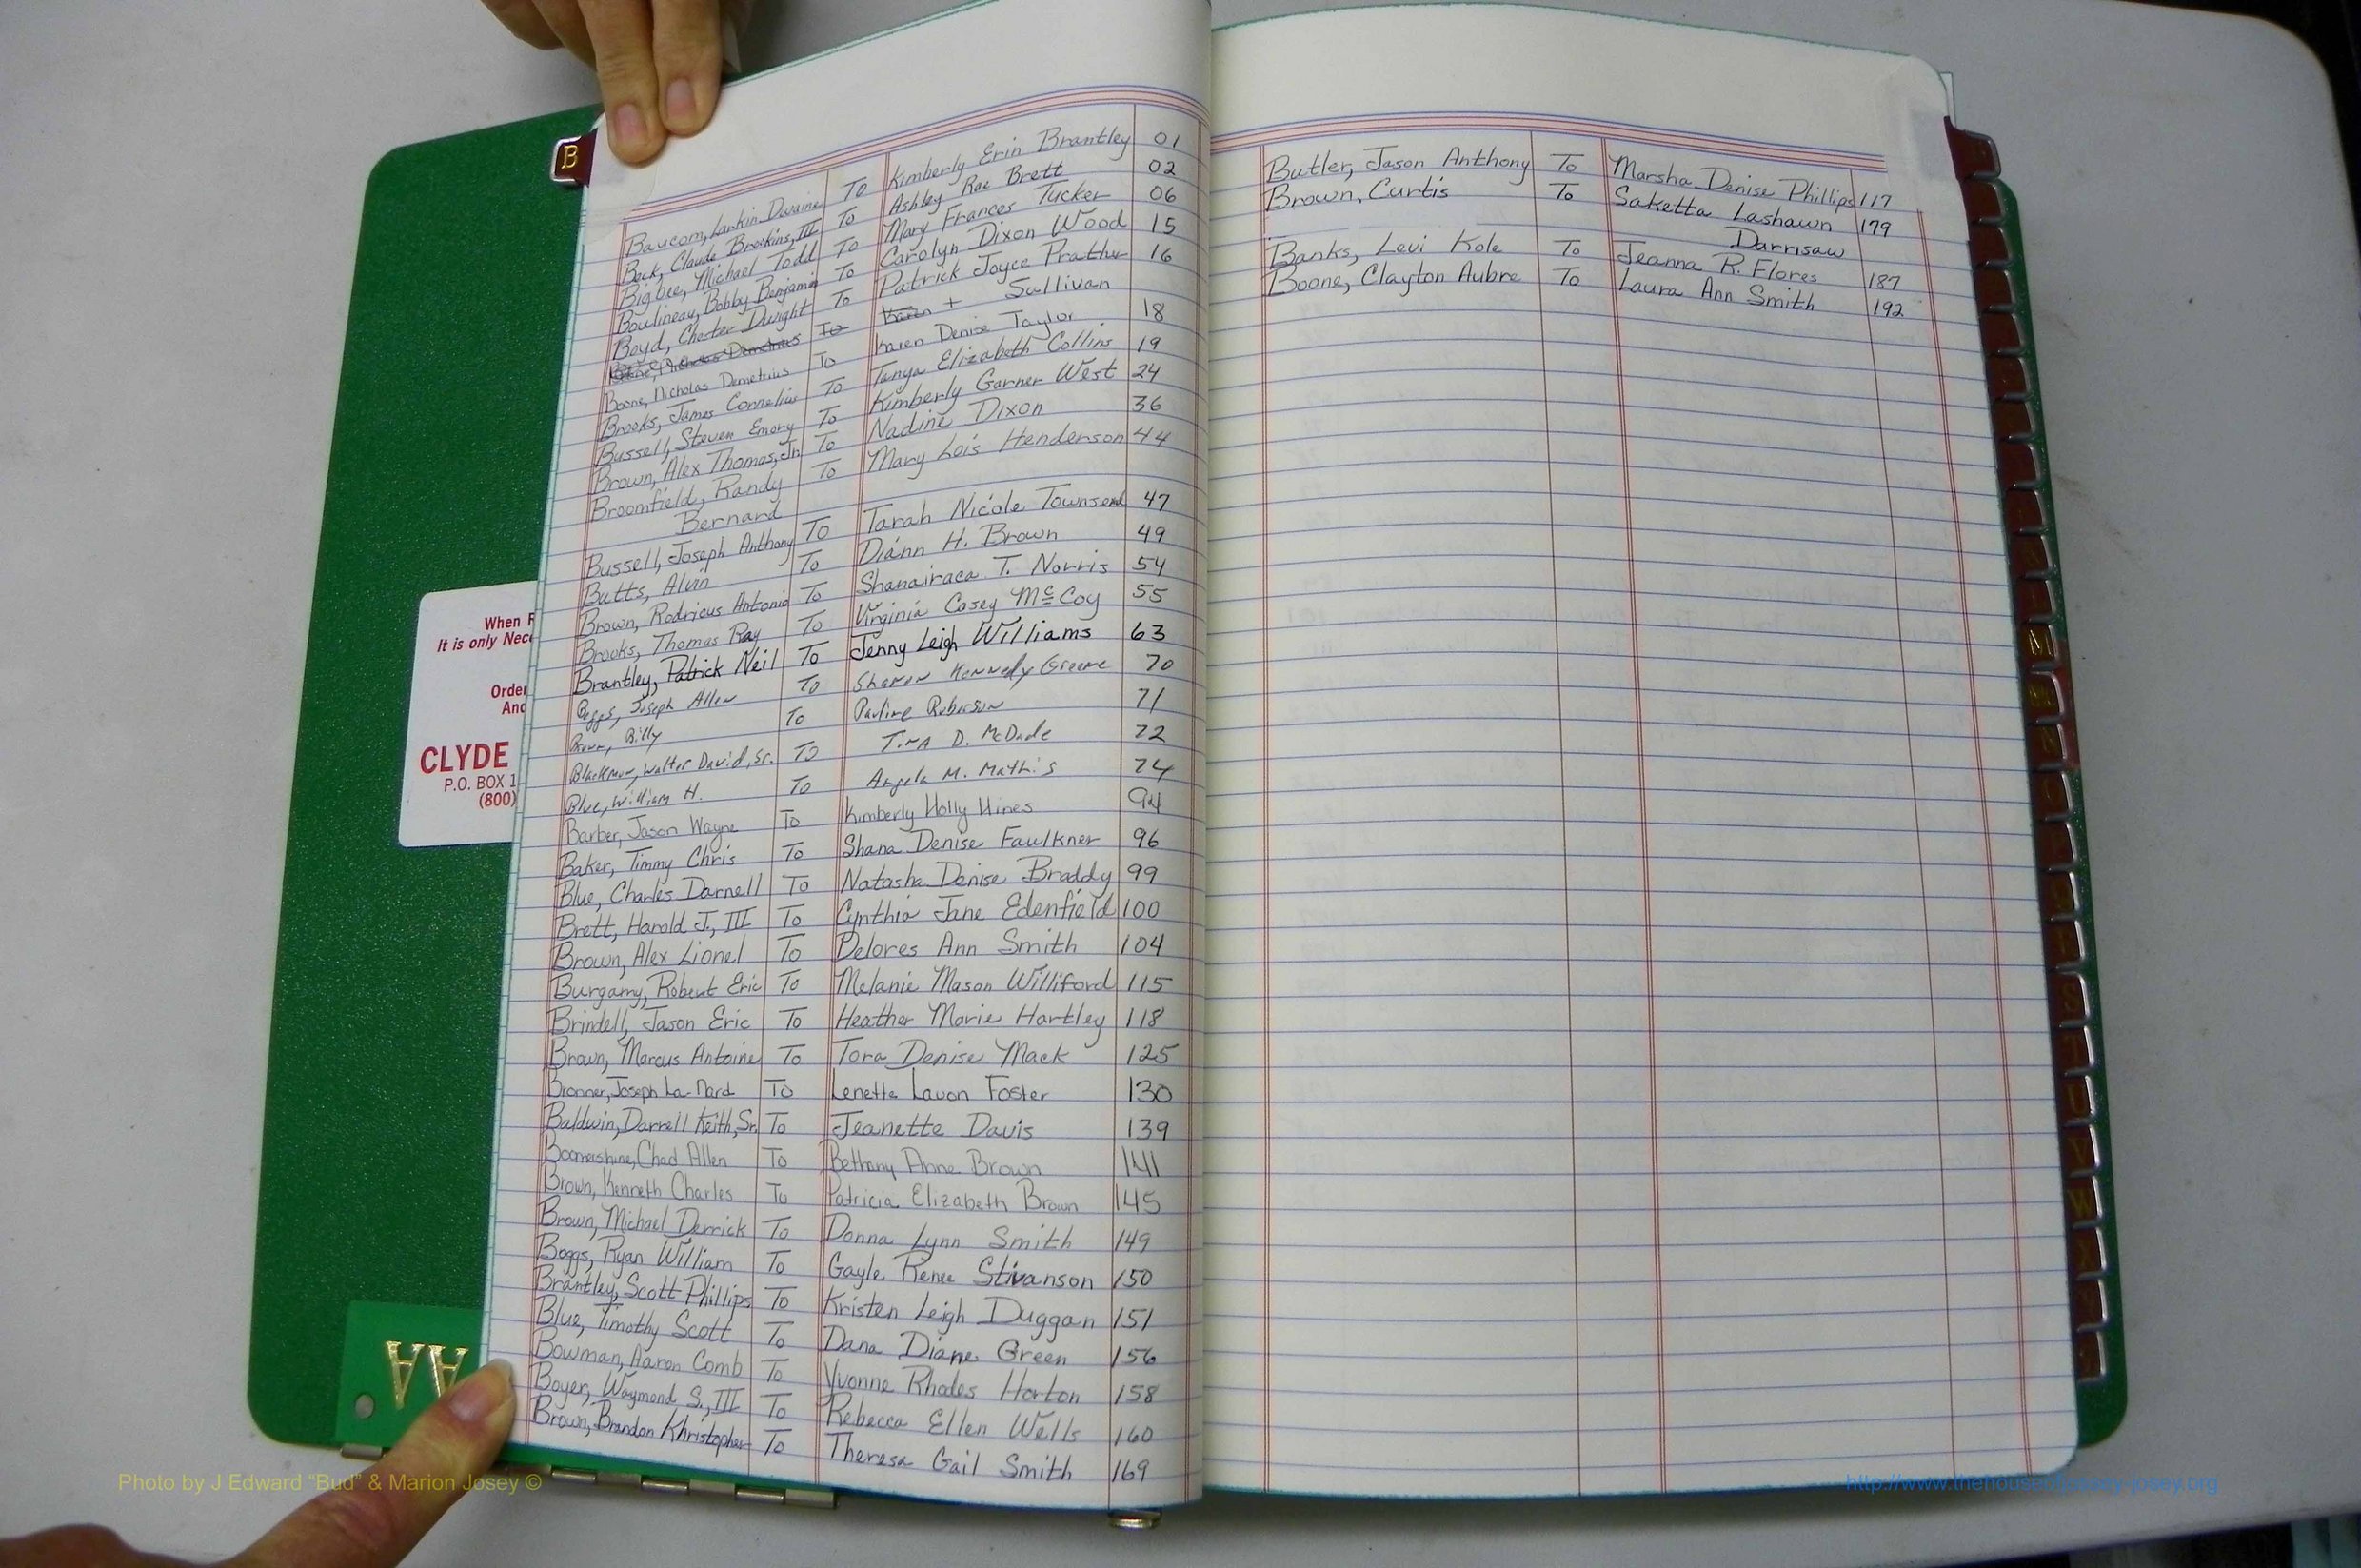 B
Baucom, Larkin Dwaine To Kimberly Erin Brantley 01
Beck, Claude Breskins, III To Ashley Rae Brett 02
Bigbee, Michael Todd To Mary Frances Tucker 06
Boulineau, Bobby Benjamin To Carolyn Dixon Wood 15
Boyd, Chester Dwight To Patrick Joyce Prather 16
Boone, Nicholas Demetrius To Karen + Sullivan
Boone, Nicholas Demetrius To Karen Denise Taylor 18
Brooks, James Cornelius To Tanya Elizabeth Collins 19
Bussell, Steven Emory To Kimberly Garner West 24
Brown, Alex Thomas, Jr. To Nadine Dixon 36
Broomfield, Randy To Mary Lois Henderson 44
Bernard
Bussell, Joseph Anthony To Tarah Nicole Townsend 47
Butts, Alvin To Diann H. Brown 49
Brown, Rodricus Antonio To Shanairaca T. Norris 54
Brooks, Thomas Ray To Virginia Casey McCoy 55
Brantley, Patrick Neil To Jenny Leigh Williams 63
Boggs, Joseph Allen To Sharon Kennedy Greene 70
Brown, Billy To Pauline Roberson 71
Blackmon, Walter David, Sr. To Tina D. McDade 72
Blue, William H. To Angela M. Mathis 74
Barber, Jason Wayne To Kimberly Holly Hines 94
Baker, Timmy Chris To Shana Denise Faulkner 96
Blue, Charles Darnell To Natasha Denise Braddy 99
Brett, Harold J., III To Cynthia Jane Edenfield 100
Brown, Alex Lionel To Delores Ann Smith 104
Burgamy, Robert Eric To Melanie Mason Williford 115
Brindell, Jason Eric To Heather Marie Hartley 118
Brown, Marcus Antoine To Tora Denise Mack 125
Bronner, Joseph La-Nard To Lenette Lavon Foster 130
Baldwin, Darrell Keith, Sr. To Jeanette Davis 139
Boomershine, Chad Allen To Bethany Anne Brown 141
Brown, Kenneth Charles To Patricia Elizabeth Brown 145
Brown, Michael Derrick To Donna Lynn Smith 149
Boggs, Ryan William To Gayle Renee Stivanson 150
Brantley, Scott Phillips To Kristen Leigh Duggan 151
Blue, Timothy Scott To Dana Diane Green 156
Bowman, Aaron Comb To Yvonne Rhodes Horton 158
Boyer, Waymond S., III To Rebecca Ellen Wells 160
Brown, Brandon Khristopher To Theresa Gail Smith 169
Butler, Jason Anthony To Marsha Denise Phillips 117
Brown, Curtis To Saketta Lashawn 179
Darrisaw
Banks, Levi Kole To Jeanna R. Flores 187
Boone, Clayton Aubre To Laura Ann Smith 192
When
It is only
Order
CLYDE
P.O. BOX 1
(800)
AA
M
N
O
P
S
T
U
V
W
X
Photo by J Edward “Bud” & Marion Josey ©